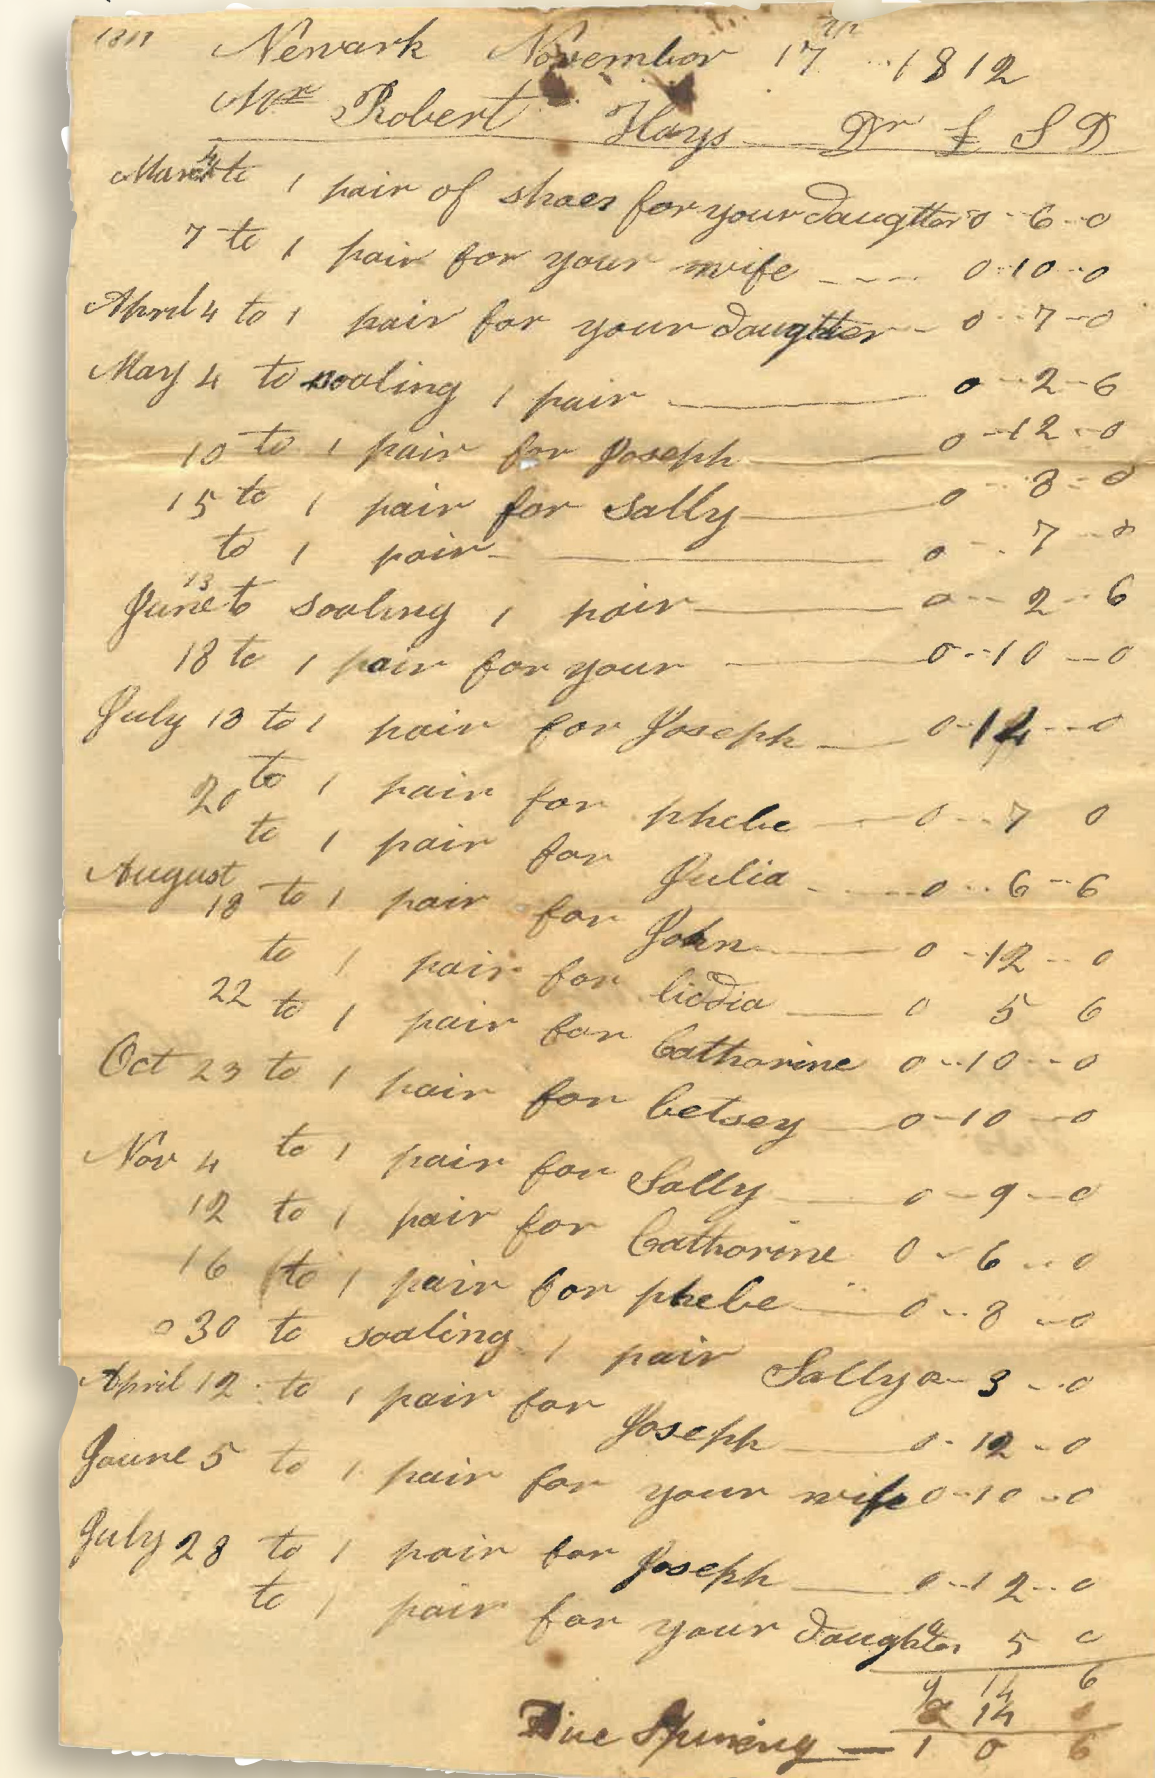 1811
Newark November 17 1812
Mr Robert Hays Dr £ S D
March 4 to 1 pair of shoes for your daugtter 0 - 6 - 0
7 to 1 pair for your wife 0 - 10 - 0
April 4 to 1 pair for your daugtter 0 - 7 - 0
May 4 to soaling 1 pair 0 - 2 - 6
10 to 1 pair for Joseph 0 - 12 - 0
15 to 1 pair for Sally 0 - 8 - 0
to 1 pair 0 - 7 - 0
June 13 to soaling 1 pair 0 - 2 - 6
18 to 1 pair for your 0 - 10 - 0
July 13 to 1 pair for Joseph 0 - 14 - 0
20 to 1 pair for phebe 0 - 7 0
to 1 pair for Julia 0 - 6 - 6
August 18 to 1 pair for John 0 - 12 - 0
to 1 pair for liddia 0 5 6
22 to 1 pair for Catharine 0 - 10 - 0
Oct 23 to 1 pair for betsey 0 - 10 - 0
Nov 4 to 1 pair for Sally 0 - 9 - 0
12 to 1 pair for Catharine 0 - 6 - 0
16 to 1 pair for phebe 0 - 8 - 0
30 to soaling 1 pair Sally 0 - 3 - 0
April 12 to 1 pair for Joseph 0 - 12 - 0
Jaune 5 to 1 pair for your wife 0 - 10 - 0
July 28 to 1 pair for Joseph 0 - 12 - 0
to 1 pair for your daughter 0 5 0
9 14 6
14
Due 1 0 6